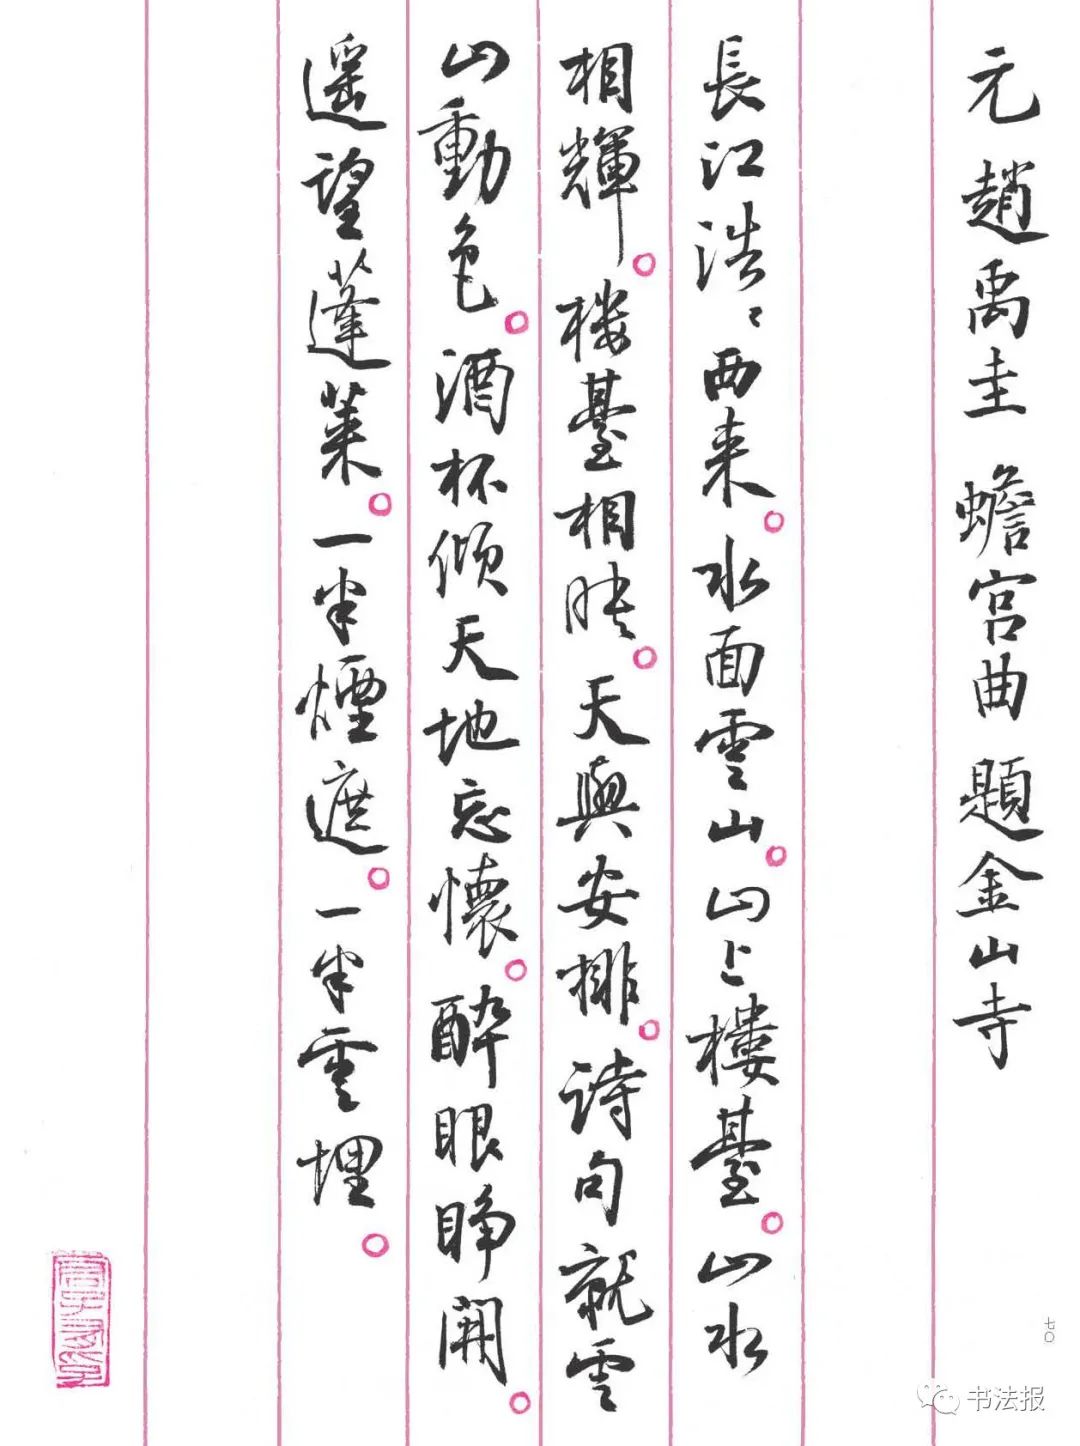 元 趙禹圭 蟾宫曲 題金山寺
長江浩〻西来。水面雲山。山上樓臺。山水
相輝。楼臺相映。天與安排。诗句就雲
山動色。酒杯傾天地忘懷。醉眼睁開。
遥望蓬莱。一半煙遮。一半雲埋。
七〇
书法报